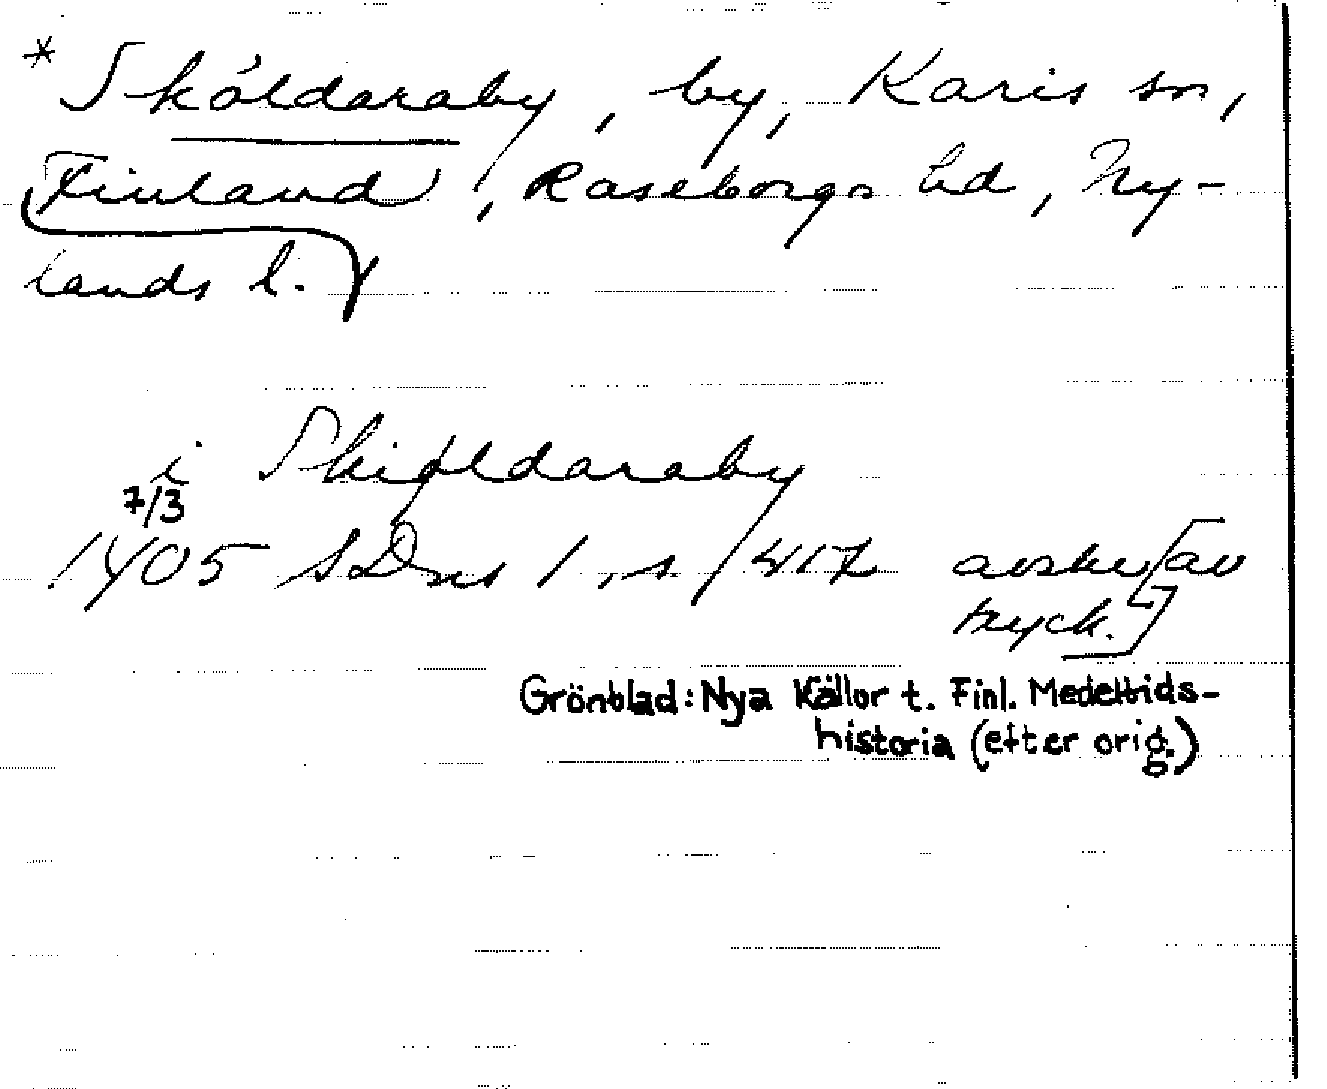 * Sköldaraby, by, Karis sn,
Finland, Raseborgs hd, Ny-
lands l.
i Skiøldaraby
7/3
1405 SDns 1, s. 417 avskr. [av
tryck.]
Grönblad: Nya Källor t. Finl. Medeltids-
historia (efter orig.)